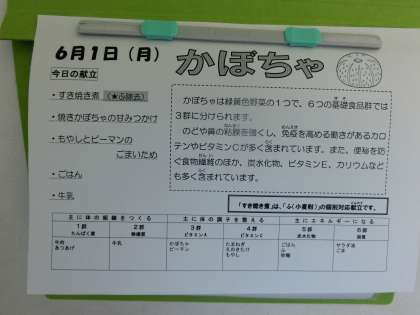 6月1日（月）
かぼちゃ
今日の献立
・すき焼き煮（★ふ除去）
・焼きかぼちゃの甘みつかけ
・もやしとピーマンの
ごまいため
・ごはん
・牛乳
かぼちゃは緑黄色野菜の1つで、6つの基礎食品群では
3群に分けられます。
のどや鼻の粘膜を強くし、免疫を高める働きがあるカロ
テンやビタミンCが多く含まれています。また、便秘を防
ぐ食物繊維のほか、炭水化物、ビタミンE、カリウムなど
も多く含まれています。
「すき焼き煮」は、「ふ（小麦粉）」の個別対応献立です。
主に体の組織をつくる 主に体の調子を整える 主にエネルギーになる
1群 2群 3群 4群 5群 6群
たんぱく質 無機質 ビタミンA ビタミンC 炭水化物 脂質
牛肉 牛乳 かぼちゃ たまねぎ ごはん サラダ油
あつあげ ピーマン えのきたけ ふ ごま
もやし 砂糖